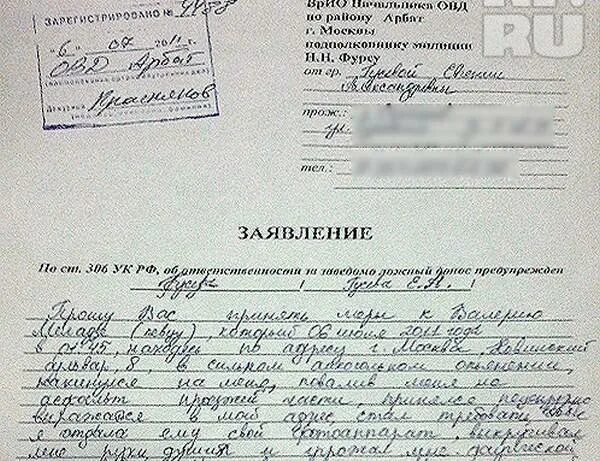 ЗАРЕГИСТРИРОВАНО №
"6" 07 2011 г.
ОВД Арбат
ВрИО Начальника ОВД
по району Арбат
г. Москвы
подполковнику милиции
Н.Н. Фурсу
от гр.
Александровны
прож.:
тел.:
KP.RU
ЗАЯВЛЕНИЕ
По ст. 306 УК РФ, об ответственности за заведомо ложный донос предупрежден
/ Гусева Е.А. /
Прошу Вас принять меры к Валерию
Меладзе (певцу), который 06 июля 2011 года
в 04.45, находясь по адресу г. Москва, Новинский
бульвар, 8, в сильном алкогольном опьянении,
накинулся на меня, повалив меня на
асфальт проезжей части, принялся нецензурно
выражаться в мой адрес, стал требовать
я отдала ему свой фотоаппарат, выкручивал
мне руки, душил и угрожал мне физической